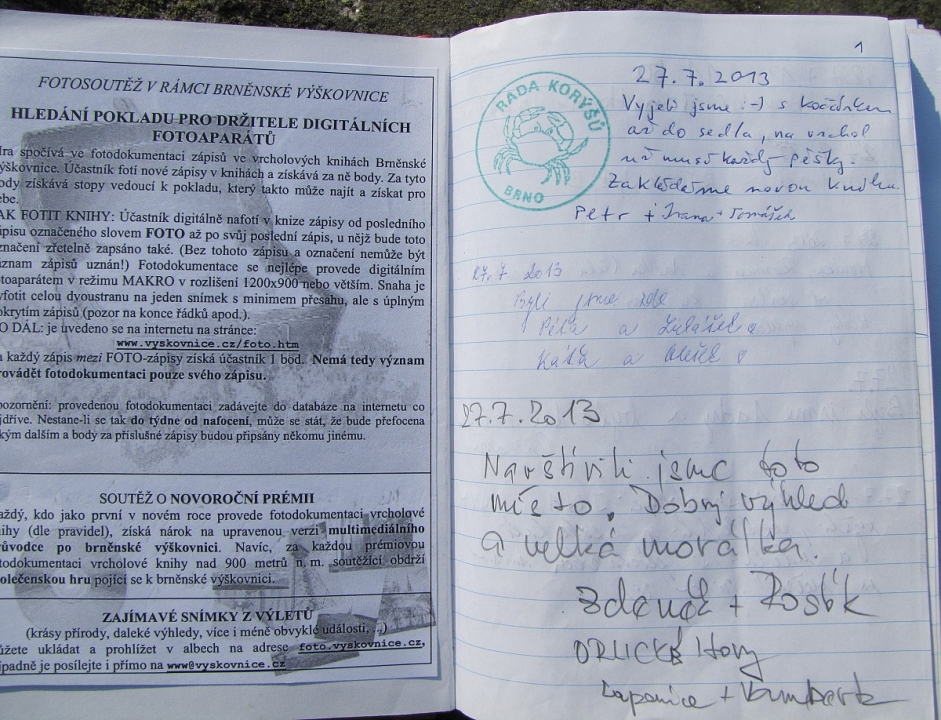 FOTOSOUTĚŽ V RÁMCI BRNĚNSKÉ VÝŠKOVNICE
HLEDÁNÍ POKLADU PRO DRŽITELE DIGITÁLNÍCH
FOTOAPARÁTŮ
spočívá ve fotodokumentaci zápisů ve vrcholových knihách Brněnské
výškovnice. Účastník fotí nové zápisy v knihách a získává za ně body. Za tyto
body získává stopy vedoucí k pokladu, který takto může najít a získat pro
sebe.
JAK FOTIT KNIHY: Účastník digitálně nafotí v knize zápisy od posledního
zápisu označeného slovem FOTO až po svůj poslední zápis, u nějž bude toto
označení zřetelně zapsáno také. (Bez tohoto zápisu a označení nemůže být
záznam zápisů uznán!) Fotodokumentace se nejlépe provede digitálním
fotoaparátem v režimu MAKRO v rozlišení 1200x900 nebo větším. Snaha je
vyfotit celou dvoustranu na jeden snímek s minimem přesahu, ale s úplným
pokrytím zápisů (pozor na konce řádků apod.).
CO DÁL: je uvedeno se na internetu na stránce:
www.vyskovnice.cz/foto.htm
a každý zápis mezi FOTO-zápisy získá účastník 1 bod. Nemá tedy význam
provádět fotodokumentaci pouze svého zápisu.
pozornění: provedenou fotodokumentaci zadávejte do databáze na internetu co
jdříve. Nestane-li se tak do týdne od nafocení, může se stát, že bude přefocena
kým dalším a body za příslušné zápisy budou připsány někomu jinému.
SOUTĚŽ O NOVOROČNÍ PRÉMII
každý, kdo jako první v novém roce provede fotodokumentaci vrcholové
knihy (dle pravidel), získá nárok na upravenou verzi multimediálního
průvodce po brněnské výškovnici. Navíc, za každou prémiovou
fotodokumentaci vrcholové knihy nad 900 metrů n. m. soutěžící obdrží
společenskou hru pojící se k brněnské výškovnici.
ZAJÍMAVÉ SNÍMKY Z VÝLETŮ
(krásy přírody, daleké výhledy, více i méně obvyklé události, ...)
můžete ukládat a prohlížet v albech na adrese foto.vyskovnice.cz,
případně je posílejte i přímo na www@vyskovnice.cz
1
RADA KORÝŠŮ
BRNO
27.7.2013
Vyjeli jsme :-) s kočárkem
až do sedla, na vrchol
už musí každý pěšky.
Zakládáme novou knihu.
Petr + Ivana + Tomášek
27.7 2013
Byli jsme zde
Péťa a
Káťa a
27.7.2013
Navštívili jsme toto
místo. Dobrý výhled
a velká morálka.
Zdeněk + Rostík
ORLICKÉ Hory